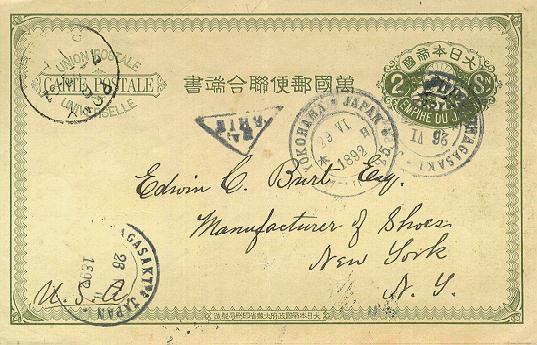 大日本帝國
UNION POSTALE
CARTE POSTALE
UNIVERSELLE
萬國郵便聯合端書
2 Sn
EMPIRE DU
NAGASAKI
26 VI
YOKOHAMA JAPAN
29 VI
1892
Edwin C. Burt Esq.
Manufacturer of Shoes
New York
N. Y.
U.S.A
NAGASAKI JAPAN
26
189
大日本帝國政府大藏省印刷局製造